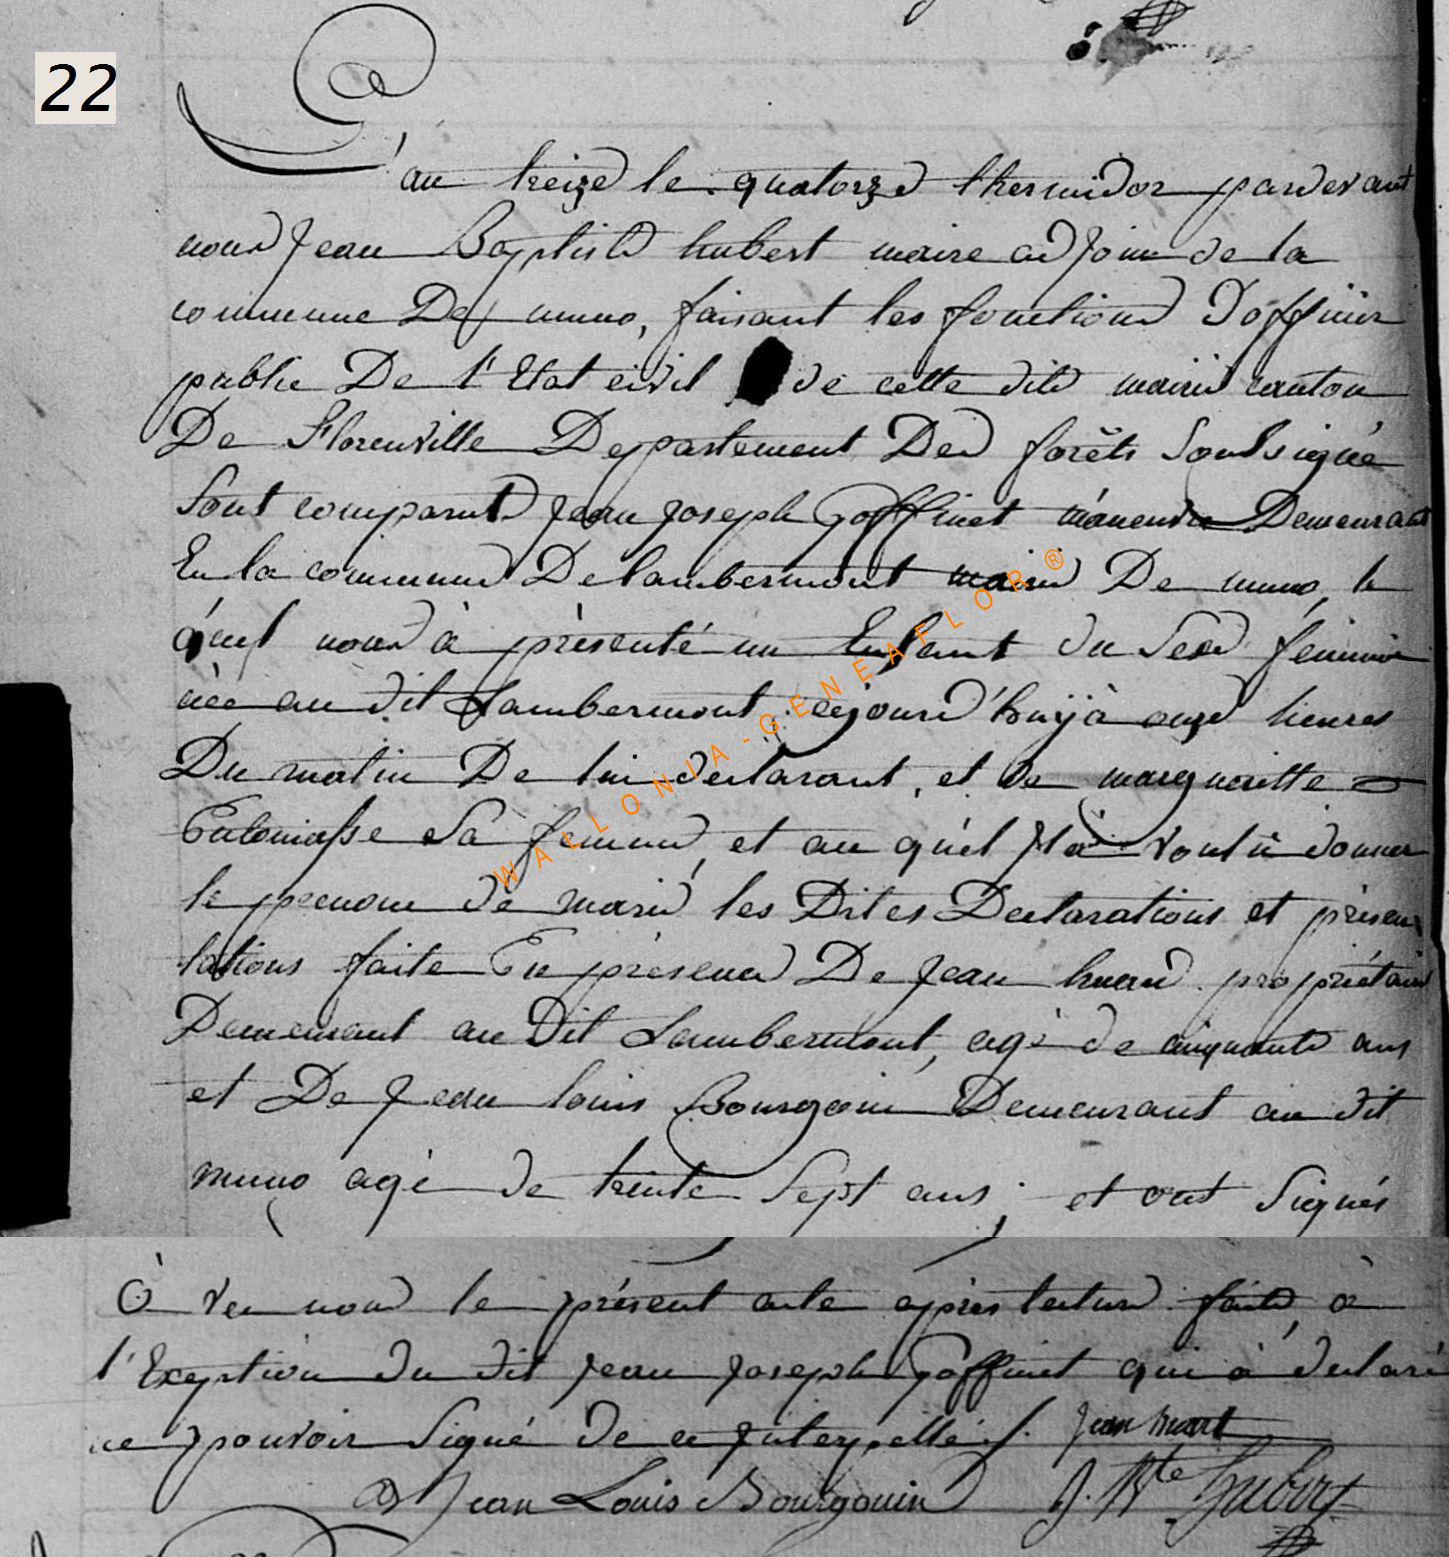 22
L'an treize le quatorze thermidor pardevant
nous Jean Baptiste hubert maire adjoint de la
commune De muno, faisant les fonctions D'officier
public De l'Etat civil de cette dite mairie canton
De Florenville Departement Des forêts Soulsigné
Sont comparut Jean Joseph Goffinet manouvre Demeurant
En la commune De lambermont mairie De muno, le
quel nous à présenté un Enfant du Sexe feminin
née au dit Lambermont cejourd'huÿ à onze heures
Du matin De lui declarant, et de margueritte
sa femme, et au quel Il à voulû donner
le prenom de marie, les Dites Declarations et présen
tations faite En présence De Jean huart propriétaire
Demeurant au Dit Lambermont, agé de cinquante ans
et De Jean louis Bourgoin Demeurant au dit
muno agé de trente Sept ans; et ont Signés
à vec nous le présent acte après lecture faite, à
l'Exeption du dit Jean Joseph Goffinet qui à declaré
ne pouvoir Signé De ce Interpellé. Jean huart
Jean Louis Bourgouin J. Bte hubert
WALLONIA-GENEAFLOR®